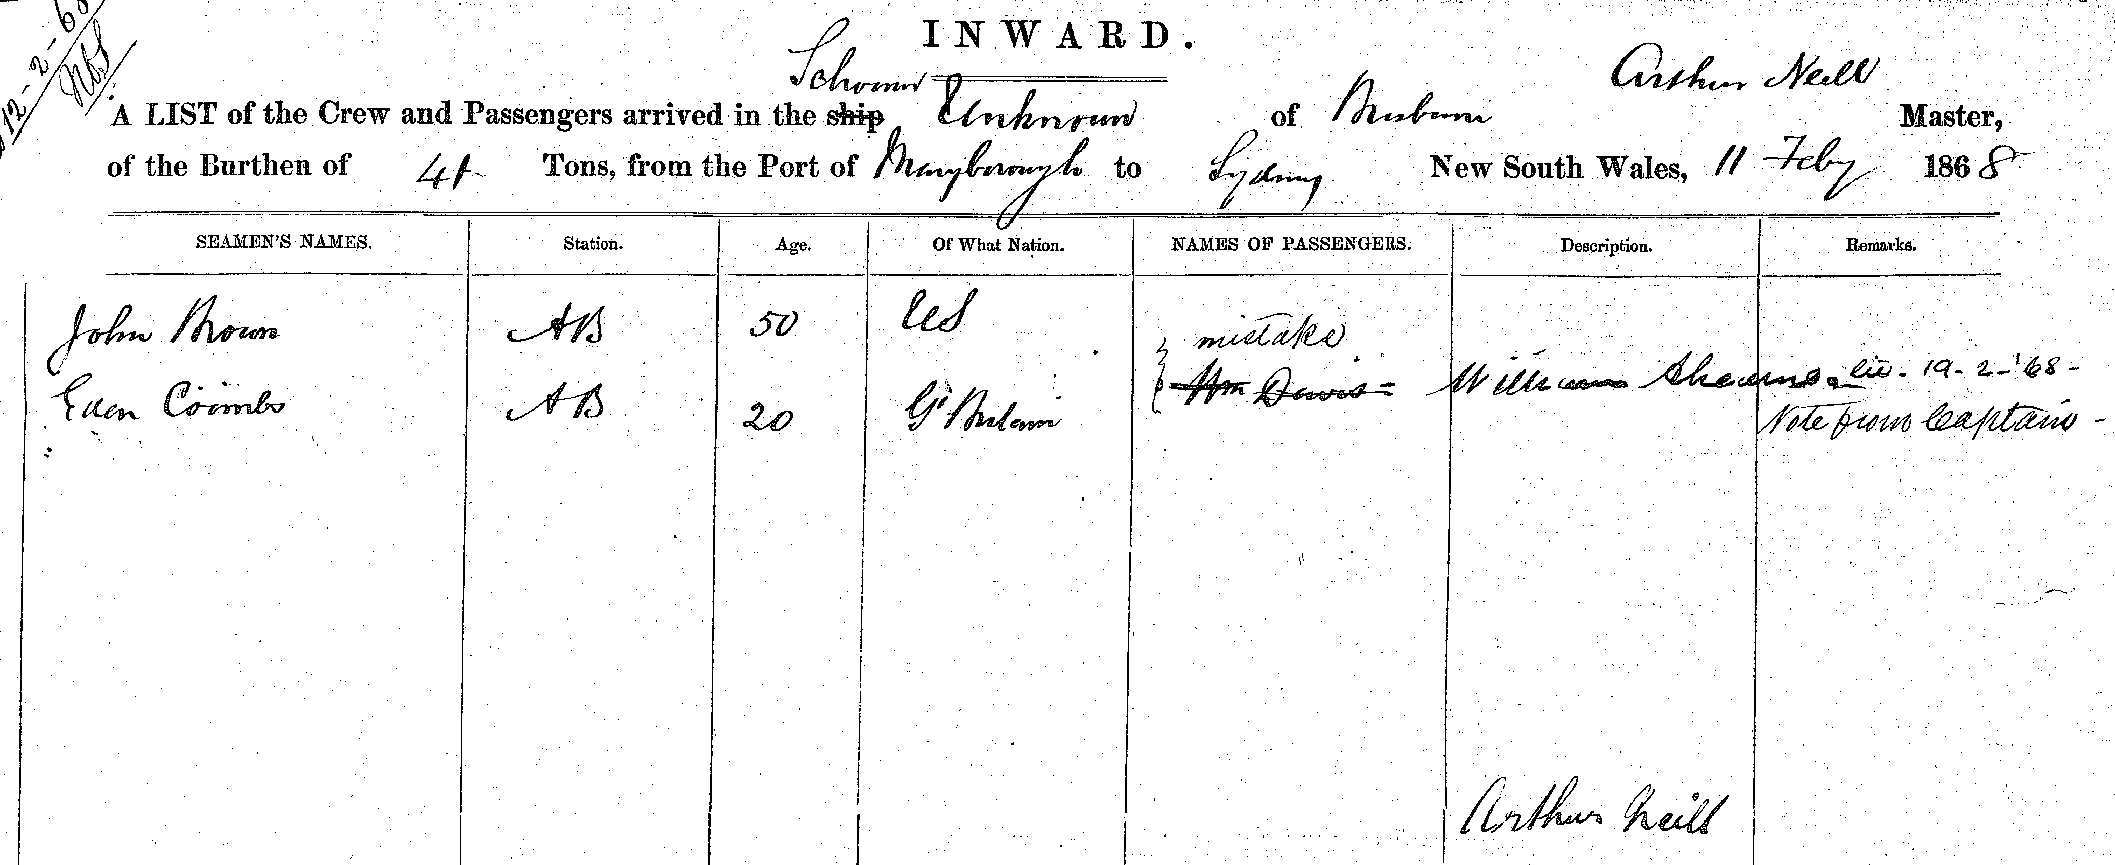 12-2-68
INWARD.
Schooner Arthur Neill
A LIST of the Crew and Passengers arrived in the ship Unknown of Brisbane Master,
of the Burthen of 41 Tons, from the Port of Maryborough to Sydney New South Wales, 11 Feby 1868
SEAMEN'S NAMES. Station. Age. Of What Nation. NAMES OF PASSENGERS. Description. Remarks.
John Brown AB 50 US mistake
Wm Davis William 19-2-'68-
Coombs AB 20 Gt Britain Note from Captain -
Arthur Neill